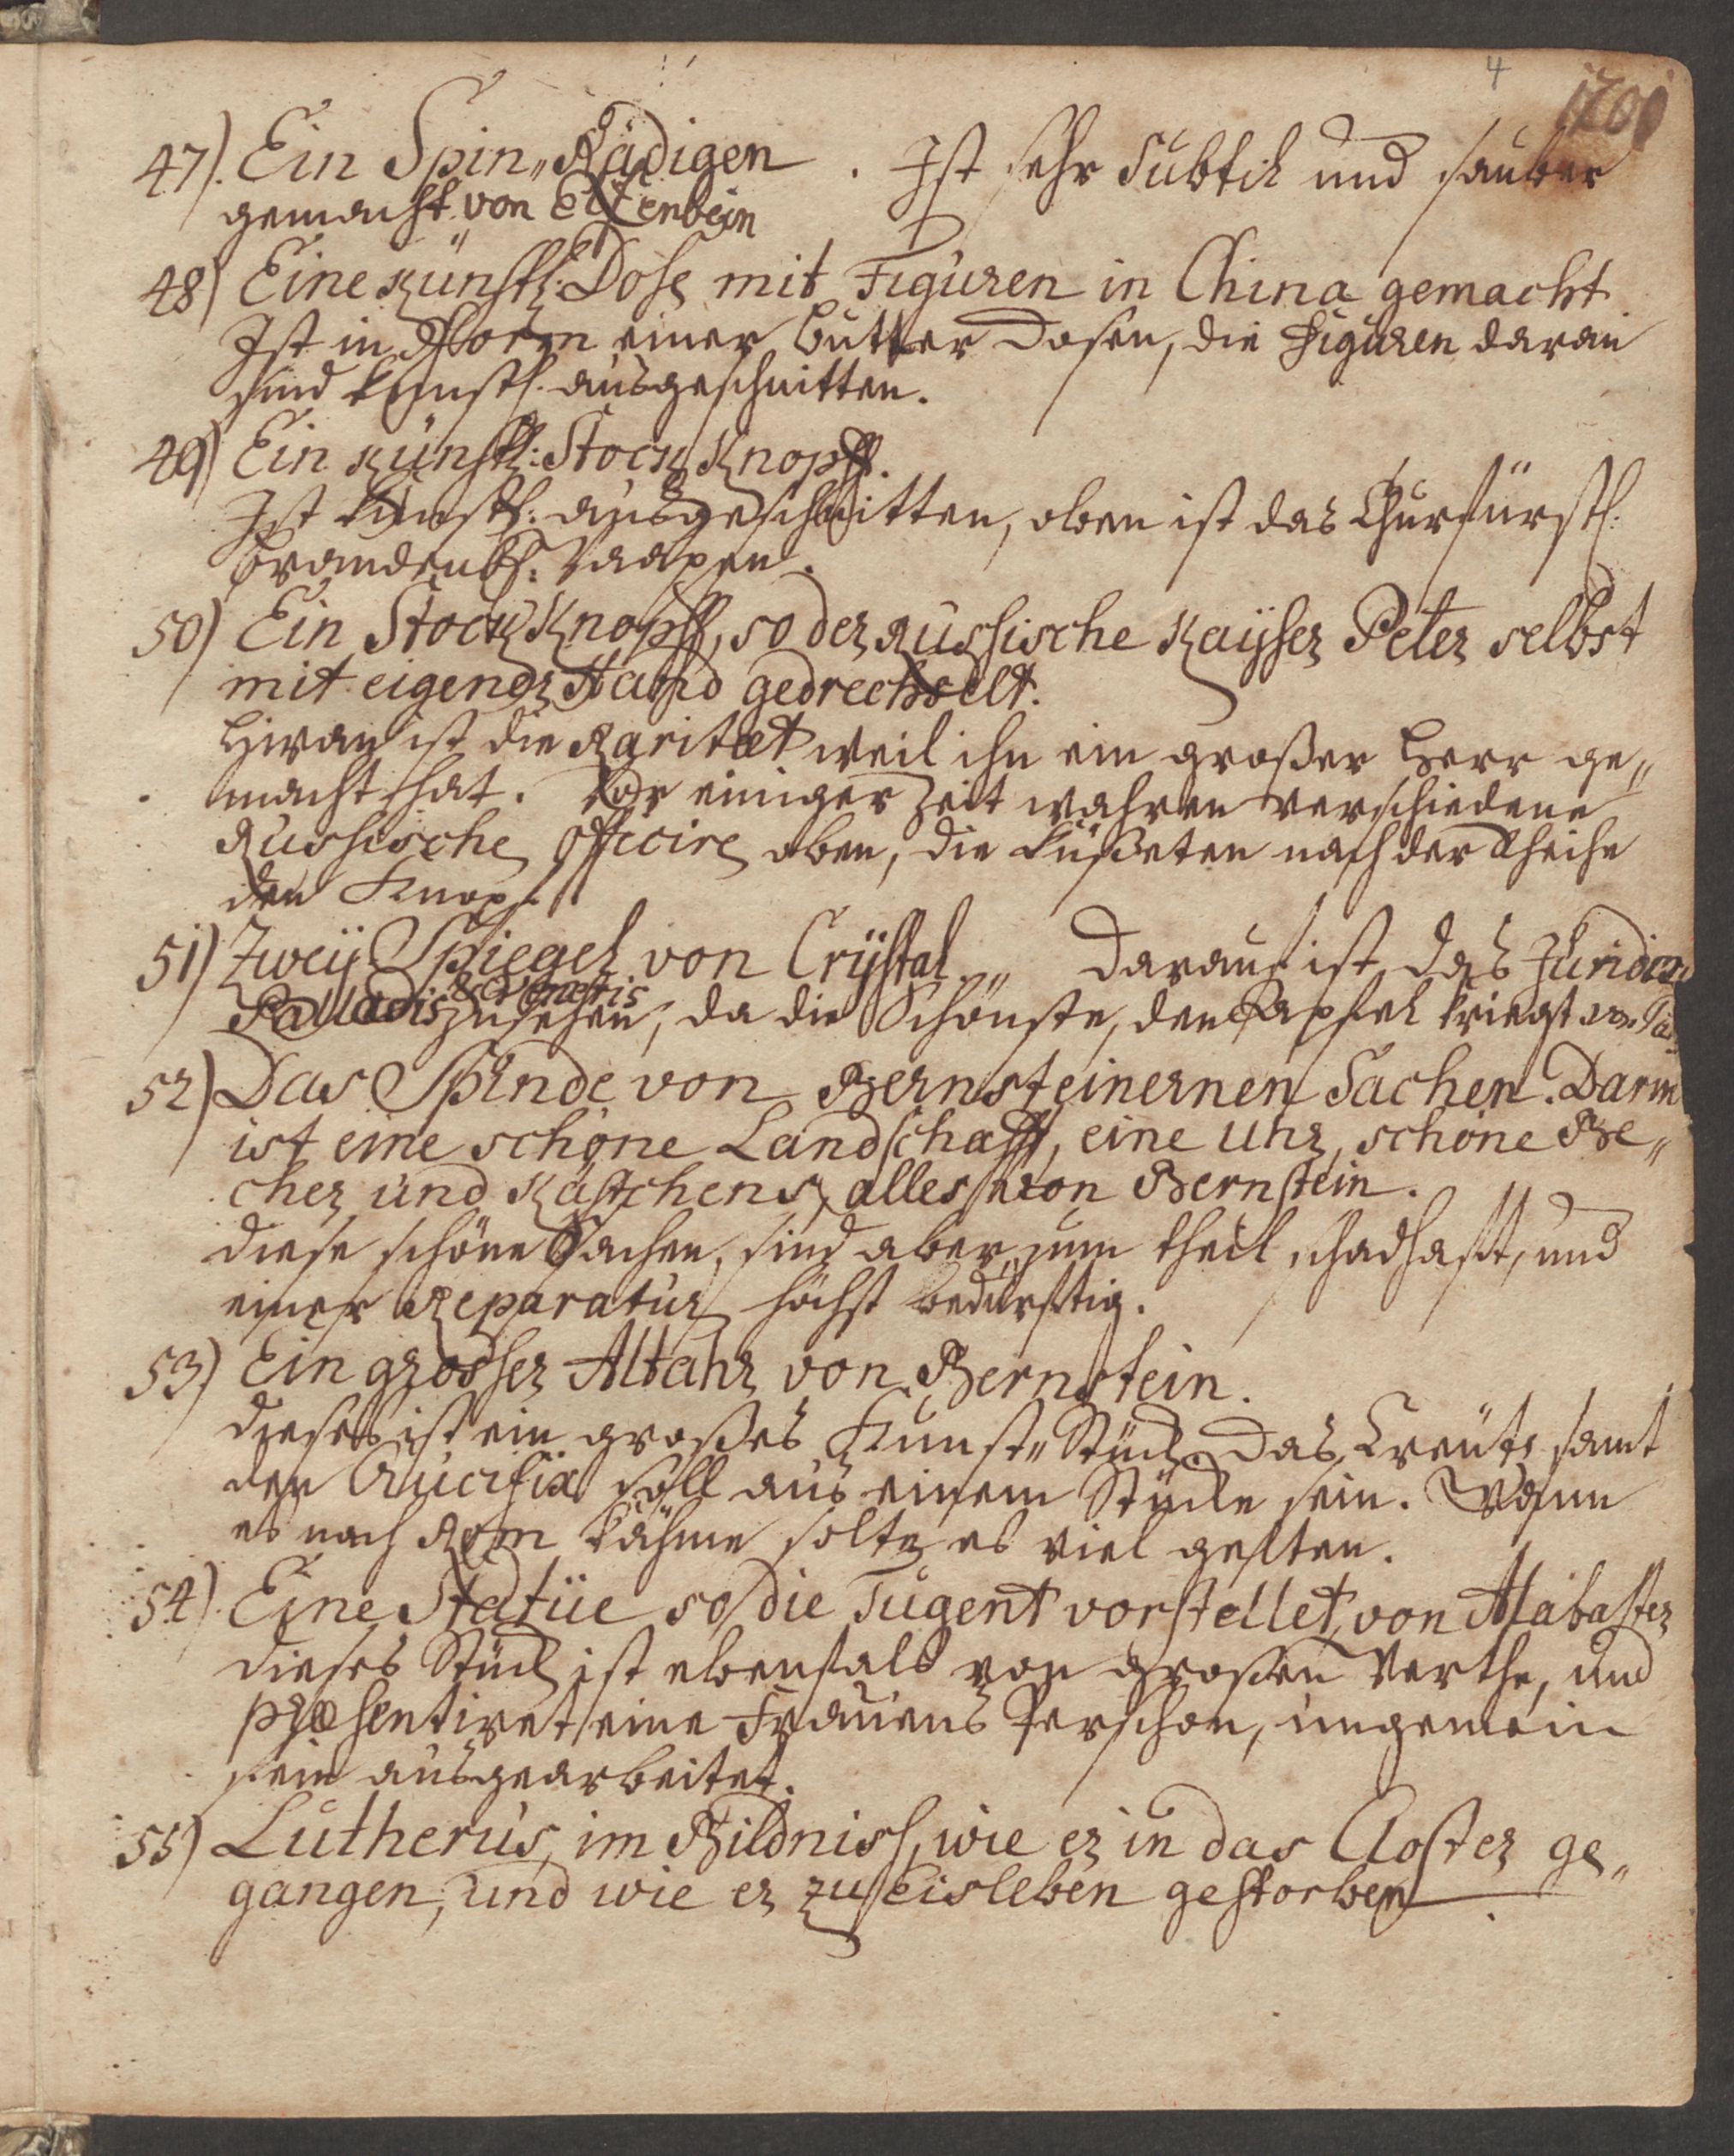 4
1201
47). Ein Spin„Rädigen. Ist sehr subtil und sauber
gemacht von Elfenbein
48) Eine Künstl: Dose mit Figuren in China gemacht
Ist in Form einer Butter Dosen, die Figuren daran
sind künstl. ausgeschnitten.
49) Ein Künstl: Stock Knopff.
Ist künstl: ausgeschnitten, oben ist das Churfürstl:
Brandenb: Wapen.
50) Ein Stock Knopff, so der Russische Kayser Peter selbst
mit eigener Hand gedrechselt.
Hieran ist die Raritæt weil ihn ein großer Herr ge„
macht hat. Vor einiger Zeit wahren verschiedene
Russische Officire oben, die küßeten nach der Rheihe
den Knopf.
51) Zweÿ Spiegel von Crÿstal„ Darauf ist das
Palladis & Veneris zusehen, da die Schönste, den Apfel kriegt
52) Das Spinde von Bernsteinernen Sachen. Darin
ist eine schöne Landschafft, eine Uhr, schöne Be„
cher und Kästchens, alles von Bernstein.
diese schöne Sachen, sind aber zum theil schadhafft, und
einer Reparatur höchst bedürftig.
53) Ein grosser Altahr von Bernstein.
dieses ist ein großes Kunst„Stück. Das Creutz samt
den Crucifix soll aus einem Stücke sein. Wann
es nach Rom kähme solte es viel gelten.
54). Eine Statüe so die Tugent vorstellet, von Alabaster
dieses Stück ist ebenfals von großen Werthe, und
præsentiret eine Frauens Perschon, ungemein
fein ausgearbeitet.
55) Lutherus, im Bildniss, wie er in das Closter ge„
gangen, und wie er zu Eisleben gestorben.